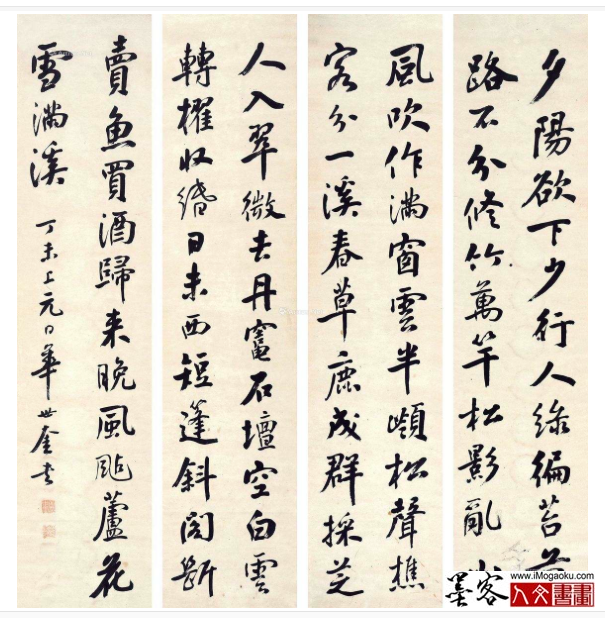 夕陽欲下少行人綠編苔
路不分修竹萬竿松影亂
風吹作滿窗雲半顛松聲樵
客分一溪春草鹿成群採芝
人入翠微去丹竈石壇空白雲
轉櫂收緡日未西短篷斜閣斷
賣魚買酒歸来晚風颭蘆花
雪滿溪
丁未上元日華世奎书
墨客
www.iMogaoku.com
人文書畫